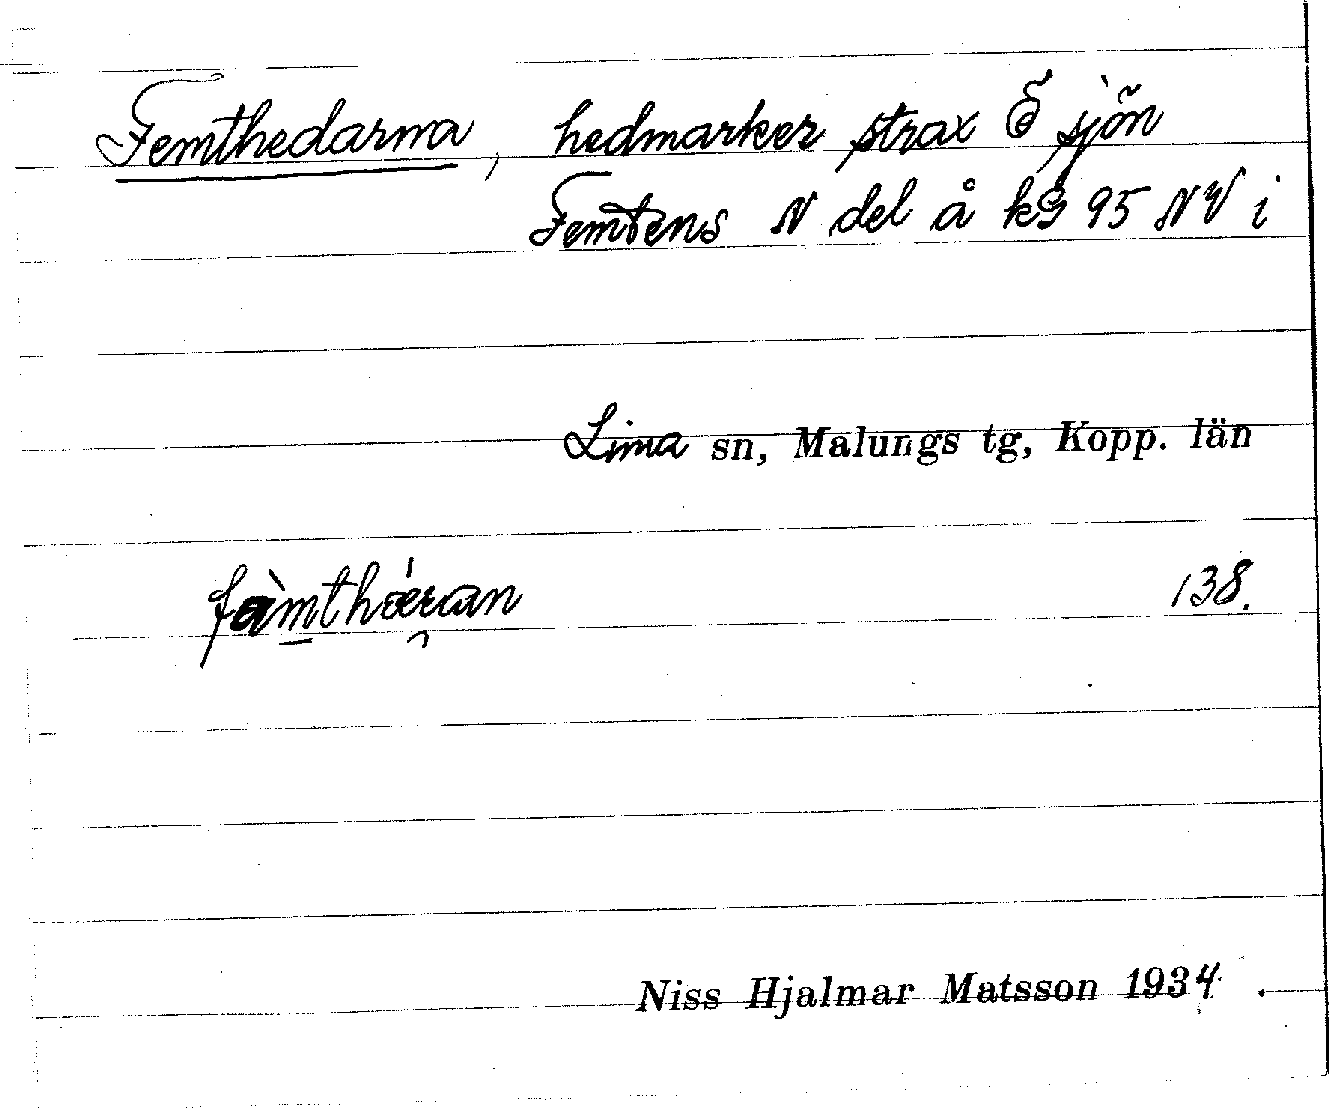 Femthedarna, hedmarker strax Ö sjön
Femtens N del å kb 95 NV i
Lima sn, Malungs tg, Kopp. län
fàmthǿran 138.
Niss Hjalmar Matsson 1934.